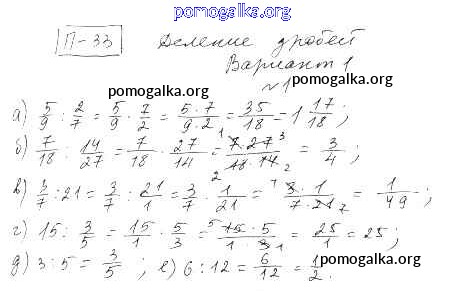 pomogalka.org
П-33 Деление дробей
Вариант 1
pomogalka.org
№1
pomogalka.org
а) 5/9 : 2/7 = 5/9 · 7/2 = 5·7/9·2 = 35/18 = 1 17/18;
б) 7/18 : 14/27 = 7/18 · 27/14 = 7·27/18·14 = 3/4;
в) 3/7 : 21 = 3/7 : 21/1 = 3/7 · 1/21 = 3·1/7·21 = 1/49;
г) 15 : 3/5 = 15/1 · 5/3 = 15·5/1·3 = 25/1 = 25;
д) 3 : 5 = 3/5; е) 6 : 12 = 6/12 = 1/2.
pomogalka.org
pomogalka.org